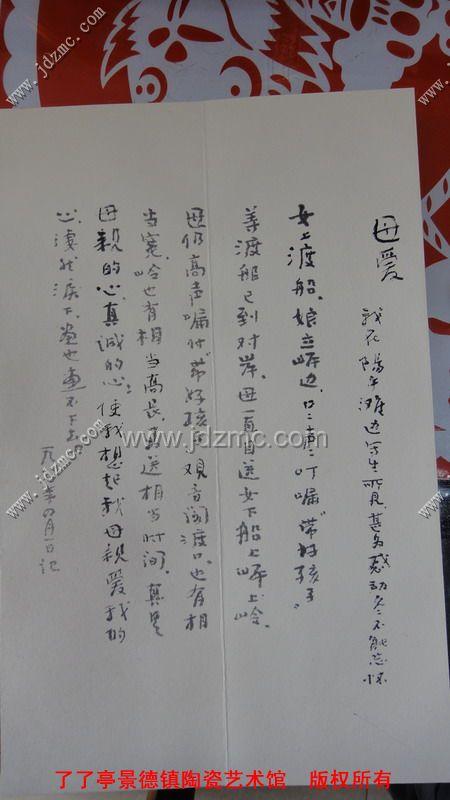 母爱
我在阳午滩边写生所见，甚为感动久久不能忘怀
女上渡船，娘立岸边，口口声声叮嘱“带好孩子”
等渡船已到对岸，母一直目送女下船上岸上岭，
母仍高声嘱咐“带好孩子”观音阁渡口也有相
当宽，岭也有相当高长，目送相当时间，真是
母亲的心，真诚的心；使我想起我母亲爱我的
心，凄然泪下，画也画不下去。
年四月一日记
www.jdzmc.com
了了亭景德镇陶瓷艺术馆 版权所有